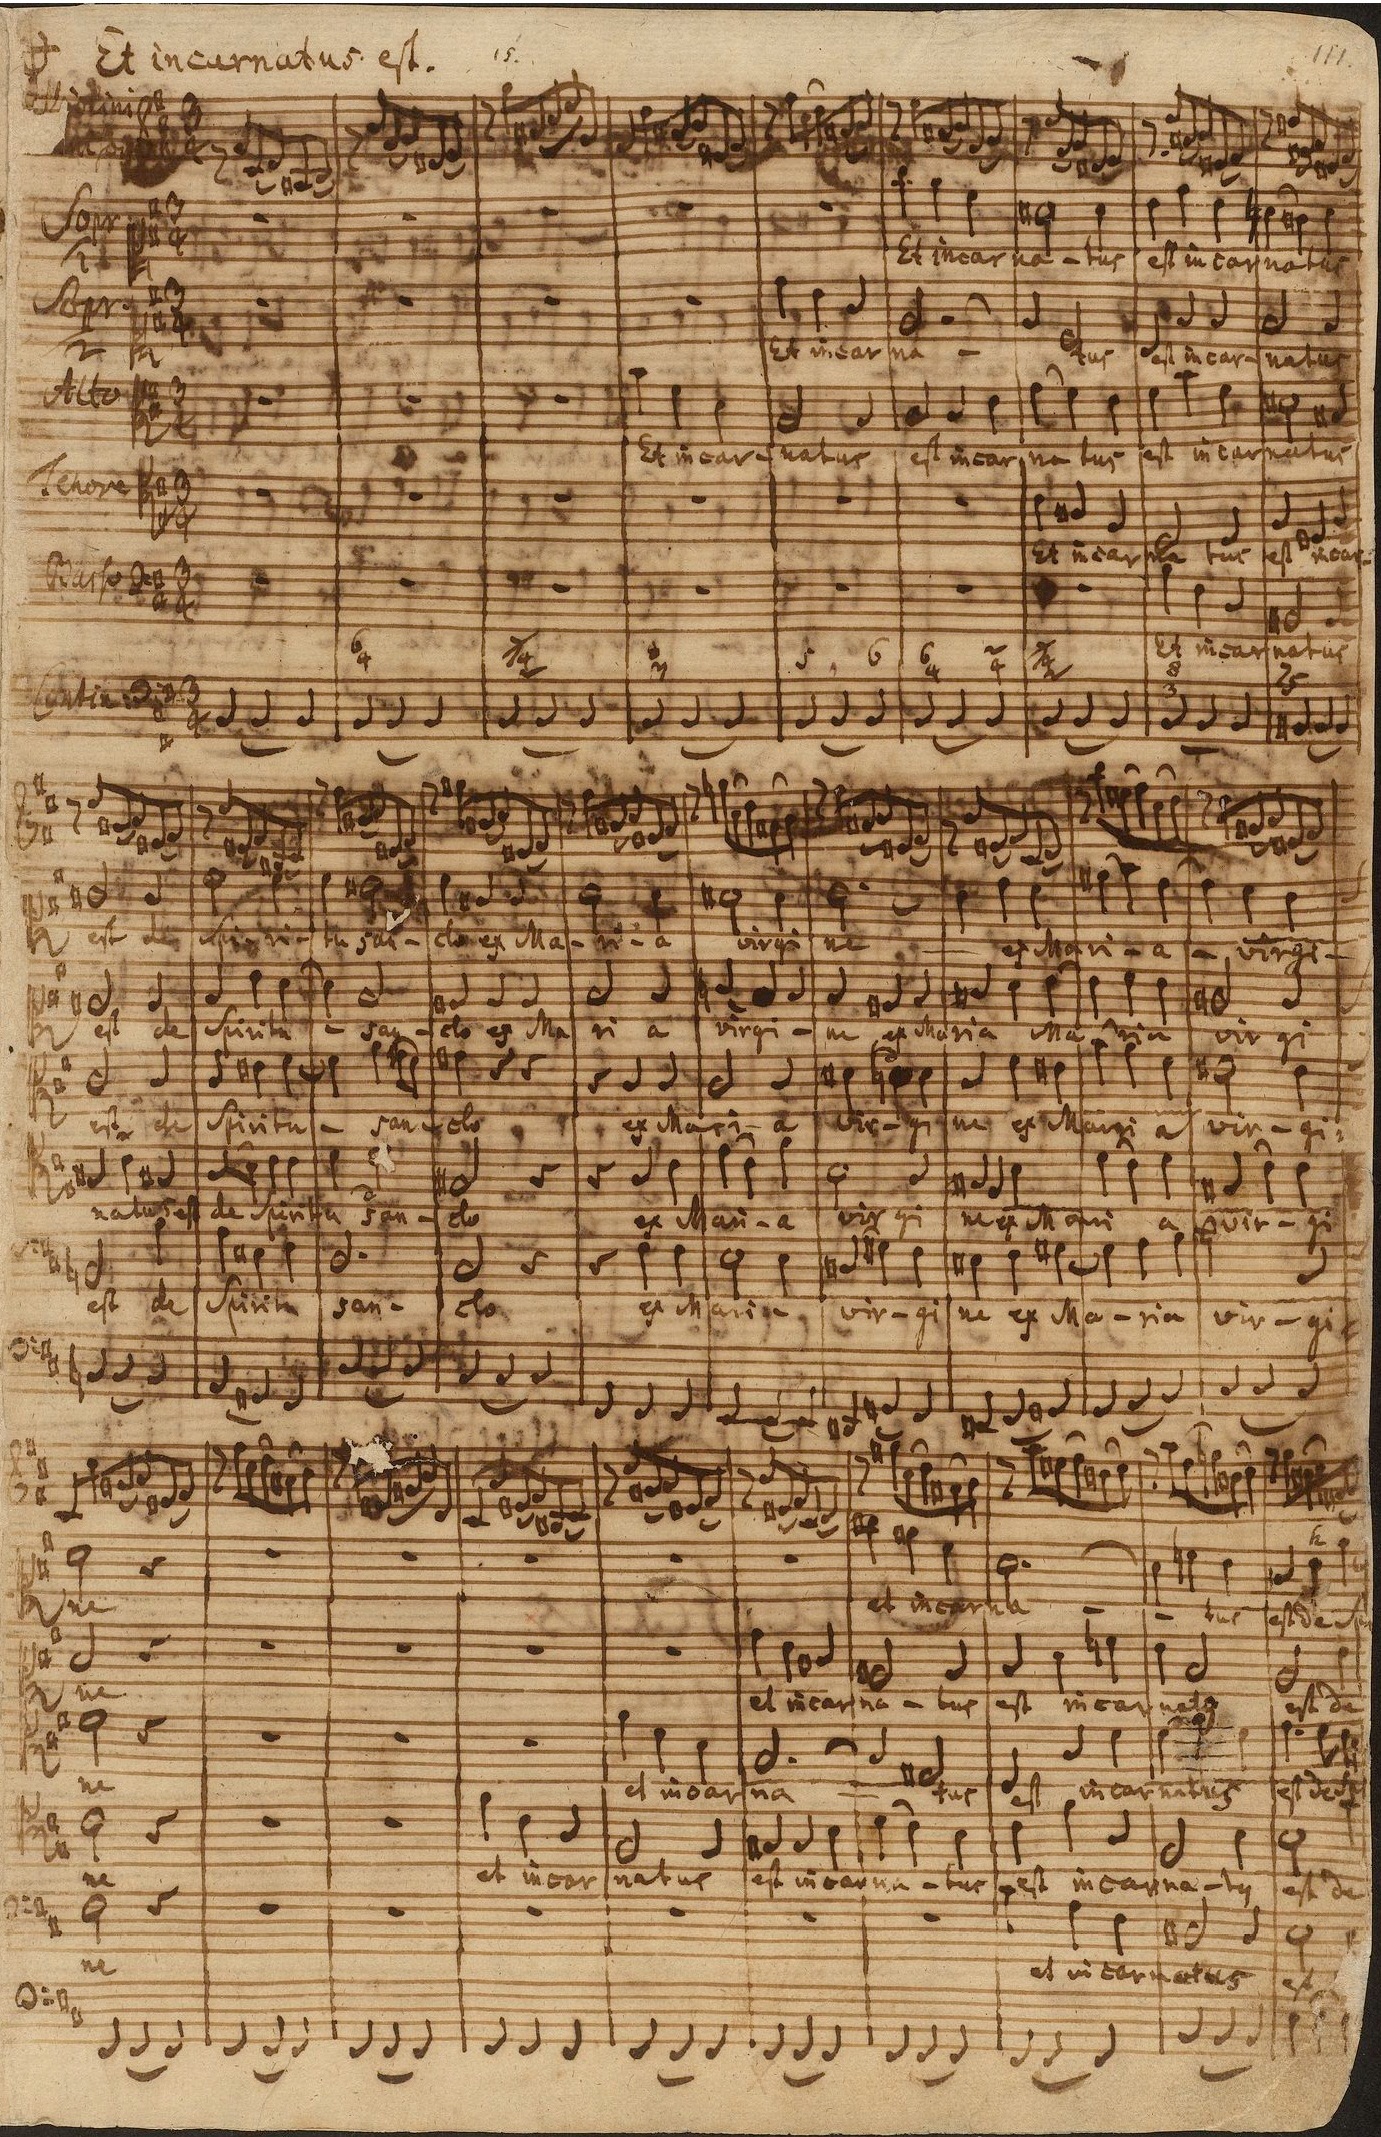 Et incarnatus est. 15. 111.
Violini
Sopr.
1
Et incarna - tus est incarnatus
Sopr.
2
Et incarna - tus est incar- natus
Alto
Et incar- natus est incarna- tus est incarnatus
Tenore
Et incarna tus est incar-
Basso
Et incarnatus
Continuo
est de Spiri- tu san- cto ex Ma- ri- a virgi ne ex Mari- a - virgi-
est de Spiritu - san- cto ex Ma ri a virgi- ne ex Maria Maria vir gi
est de Spiritu - san- cto ex Mari- a vir- gi ne ex Mari a vir- gi-
natus est de Spiritu san- cto ex Mari- a vir gi ne ex Mari a vir- gi
est de Spiritu san- cto ex Mari- vir- gi ne ex Ma- ria vir- gi
ne et incarna - - tus est de
ne et incarna- tus est incarnatus est de
ne et incarna - tus est incarnatus est de
ne et incar natus est incarna- tus est incarna- tus est de
ne et incarnatus est